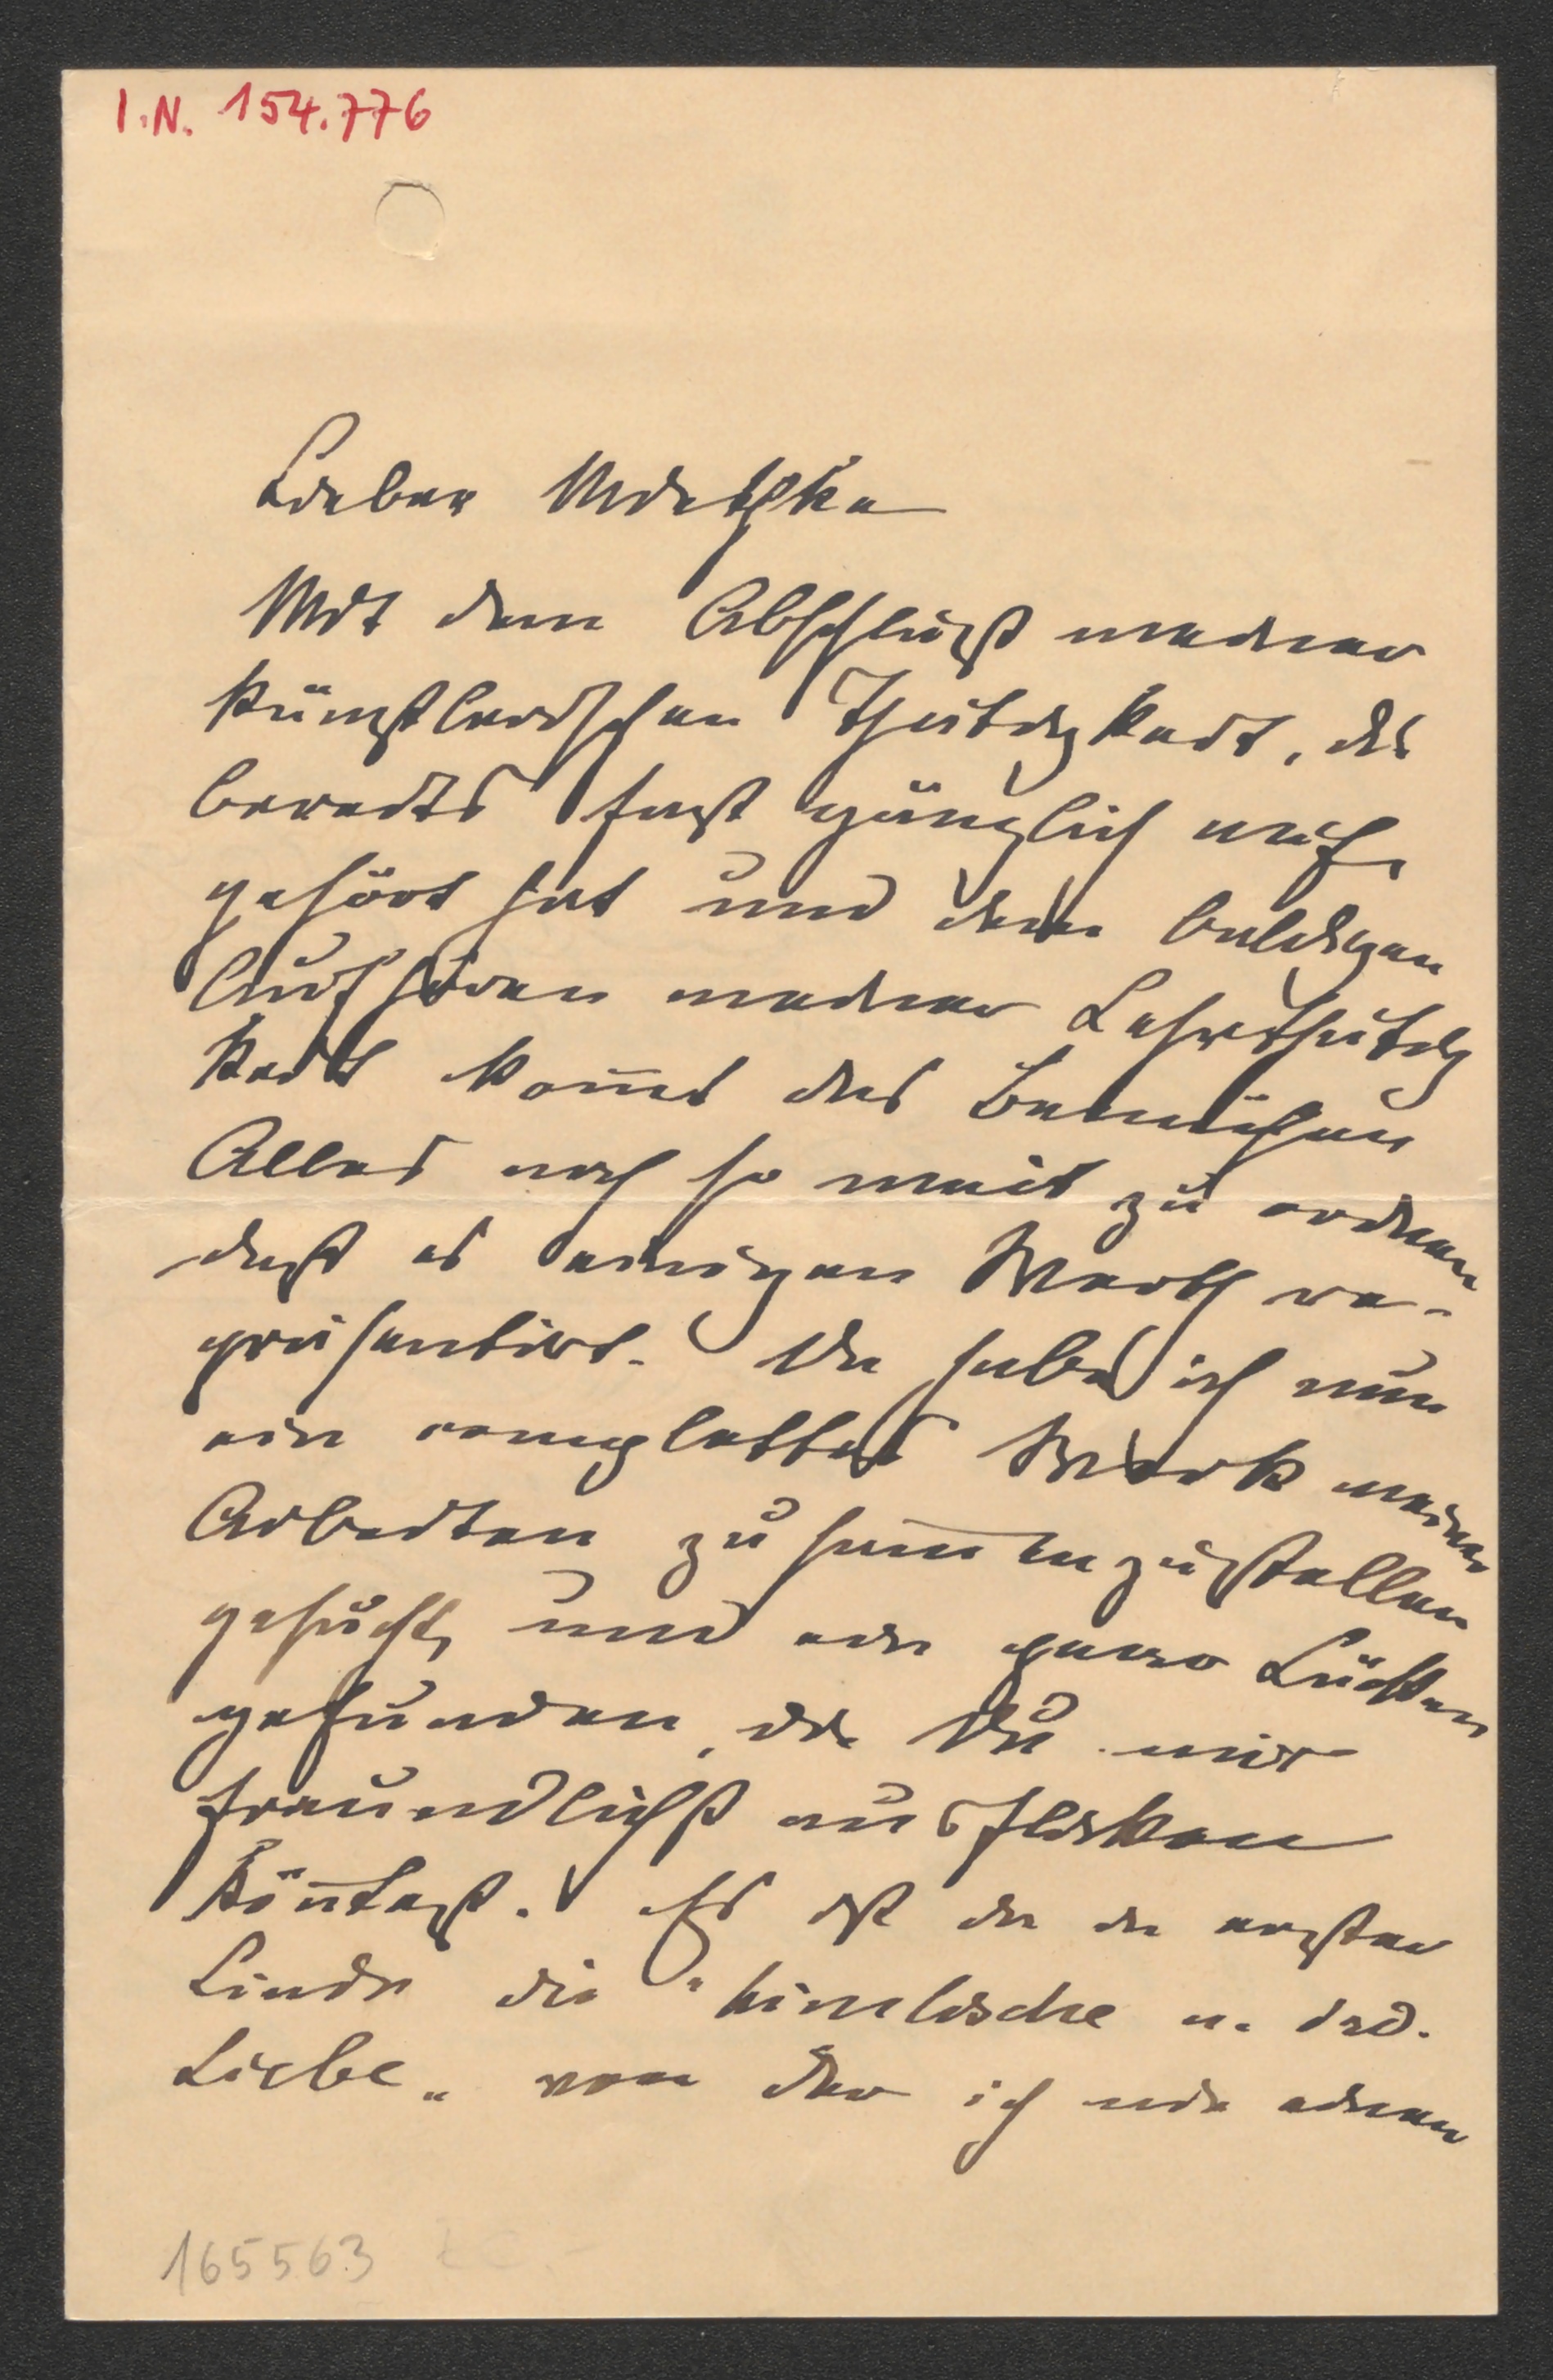 I.N. 154.776
Lieber Mietschke
Mit dem Abschluß meiner
künstlerischen Thätigkeit, die
bereits fast gänzlich auf-
gehört hat und dem baldigen
Aufhören meiner Lehrthätig
keit kom̄t das Bemühen
Alles noch so weit zu ordnen
daß es einigen Werth re-
präsentirt. Da habe ich nun
ein complettes Werk meiner
Arbeiten zusam̄enzustellen
gesucht, und ein paar Lücken
gefunden, die Du mir
freundlichst ausflicken
kön̄test. Es ist da in erster
Linie die "himlische u. ird.
Liebe" von der ich nie einen
165563